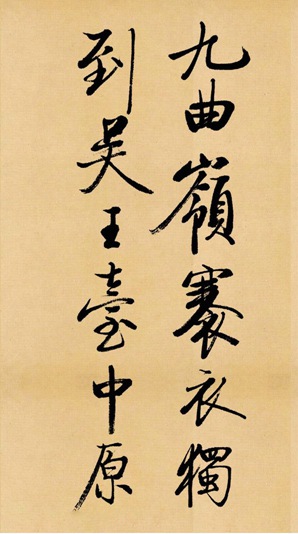 九曲嶺褰衣獨
到吳王臺中原